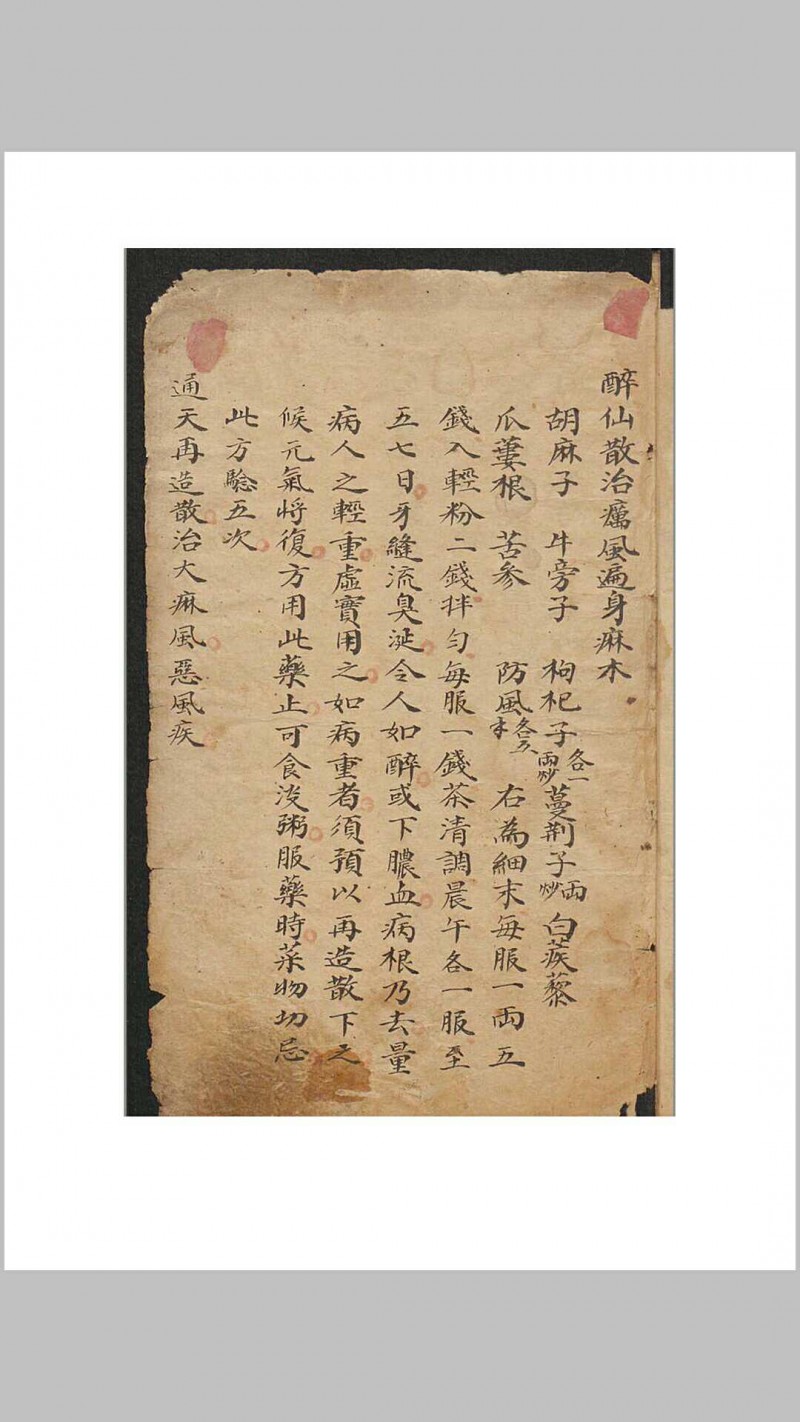 醉仙散治癘風遍身麻木
胡麻子 牛旁子 枸杞子各一兩炒 蔓荆子兩炒 白蒺藜
瓜蔞根 苦参 防風各五 右為細末每服一兩五
錢入輕粉二錢拌勻每服一錢茶清調晨午各一服至
五七日牙縫流臭涎令人如醉或下膿血病根乃去量
病人之輕重虛實用之如病重者須預以再造散下之
候元氣將復方用此藥止可食淡粥服藥時菜物切忌
此方驗五次
通天再造散治大麻風惡風疾